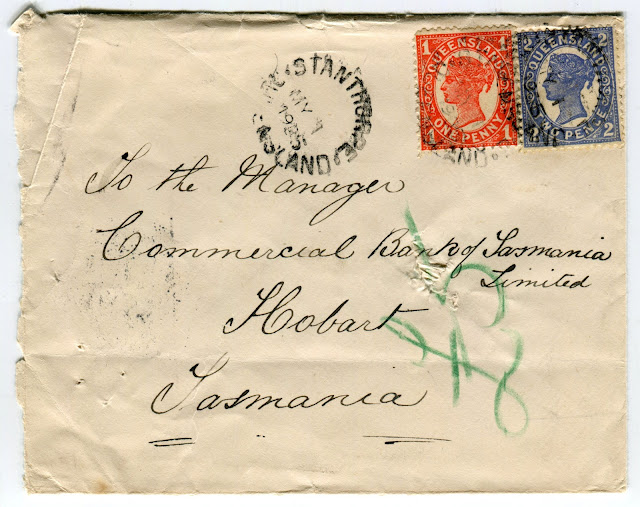 1 QUEENSLAND 1
ONE PENNY
1 1
2 QUEENSLAND 2
PENCE
2
STANTHORPE
MY
To the Manager
Commercial Bank of Tasmania
Limited
Hobart
Tasmania